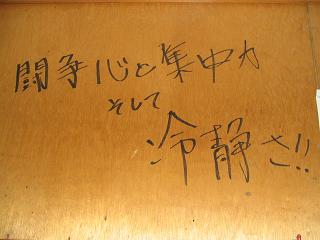 闘争心と集中力
そして
冷静さ!!